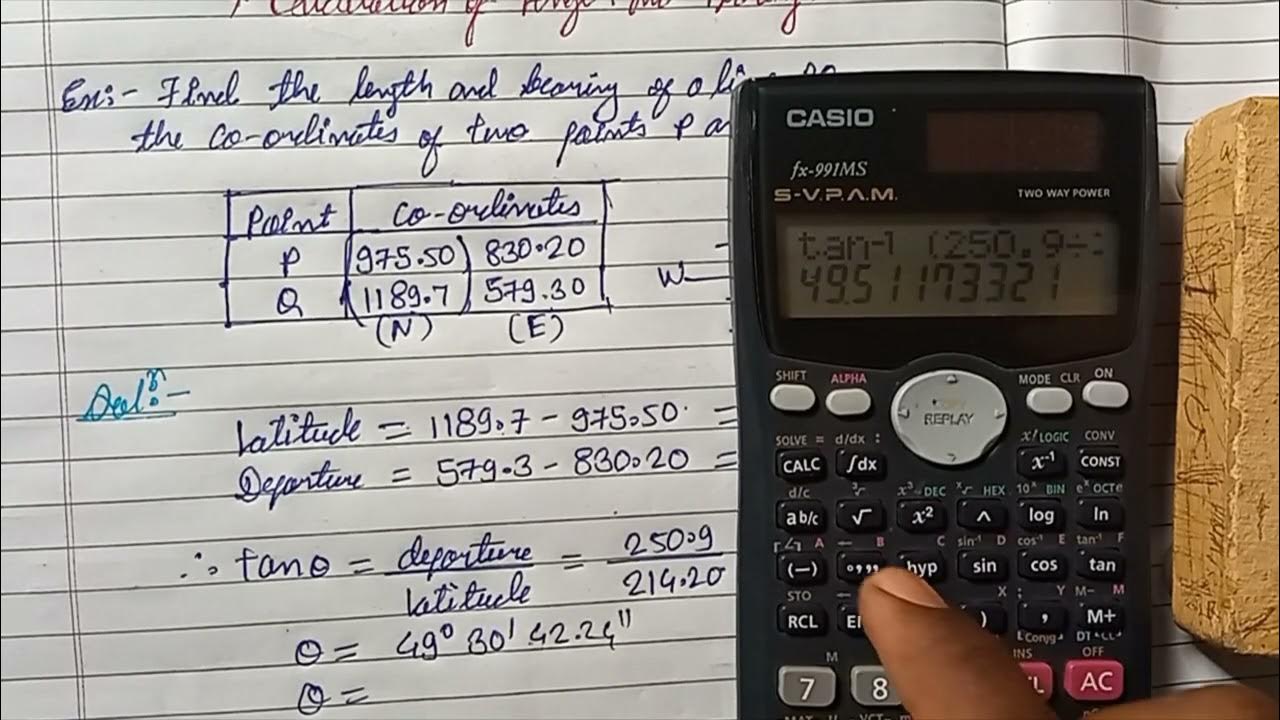 Calculation of
Ex:- Find the length and bearing of a line
the co-ordinates of two points P
Point co-ordinates
P 975.50 830.20
Q 1189.7 579.30
(N) (E)
W
Soln:-
Latitude = 1189.7 - 975.50 =
Departure = 579.3 - 830.20 =
∴ tanθ = departure/latitude = 250.9/214.20
θ = 49° 30' 42.24"
θ =
CASIO
fx-991MS
S-V.P.A.M.
TWO WAY POWER
tan-1 (250.9÷
49.51173321
SHIFT ALPHA MODE CLR ON
REPLAY
SOLVE = d/dx : x!LOGIC CONV
CALC ∫dx x-1 CONST
d/c 3√ x3 DEC x√ HEX 10x BIN ex OCT
ab/c √ x2 ^ log ln
A B C sin-1 D cos-1 E tan-1 F
(−) °,,, hyp sin cos tan
STO X ; Y M− M
RCL ) , M+
INS OFF
M
7 8 AC